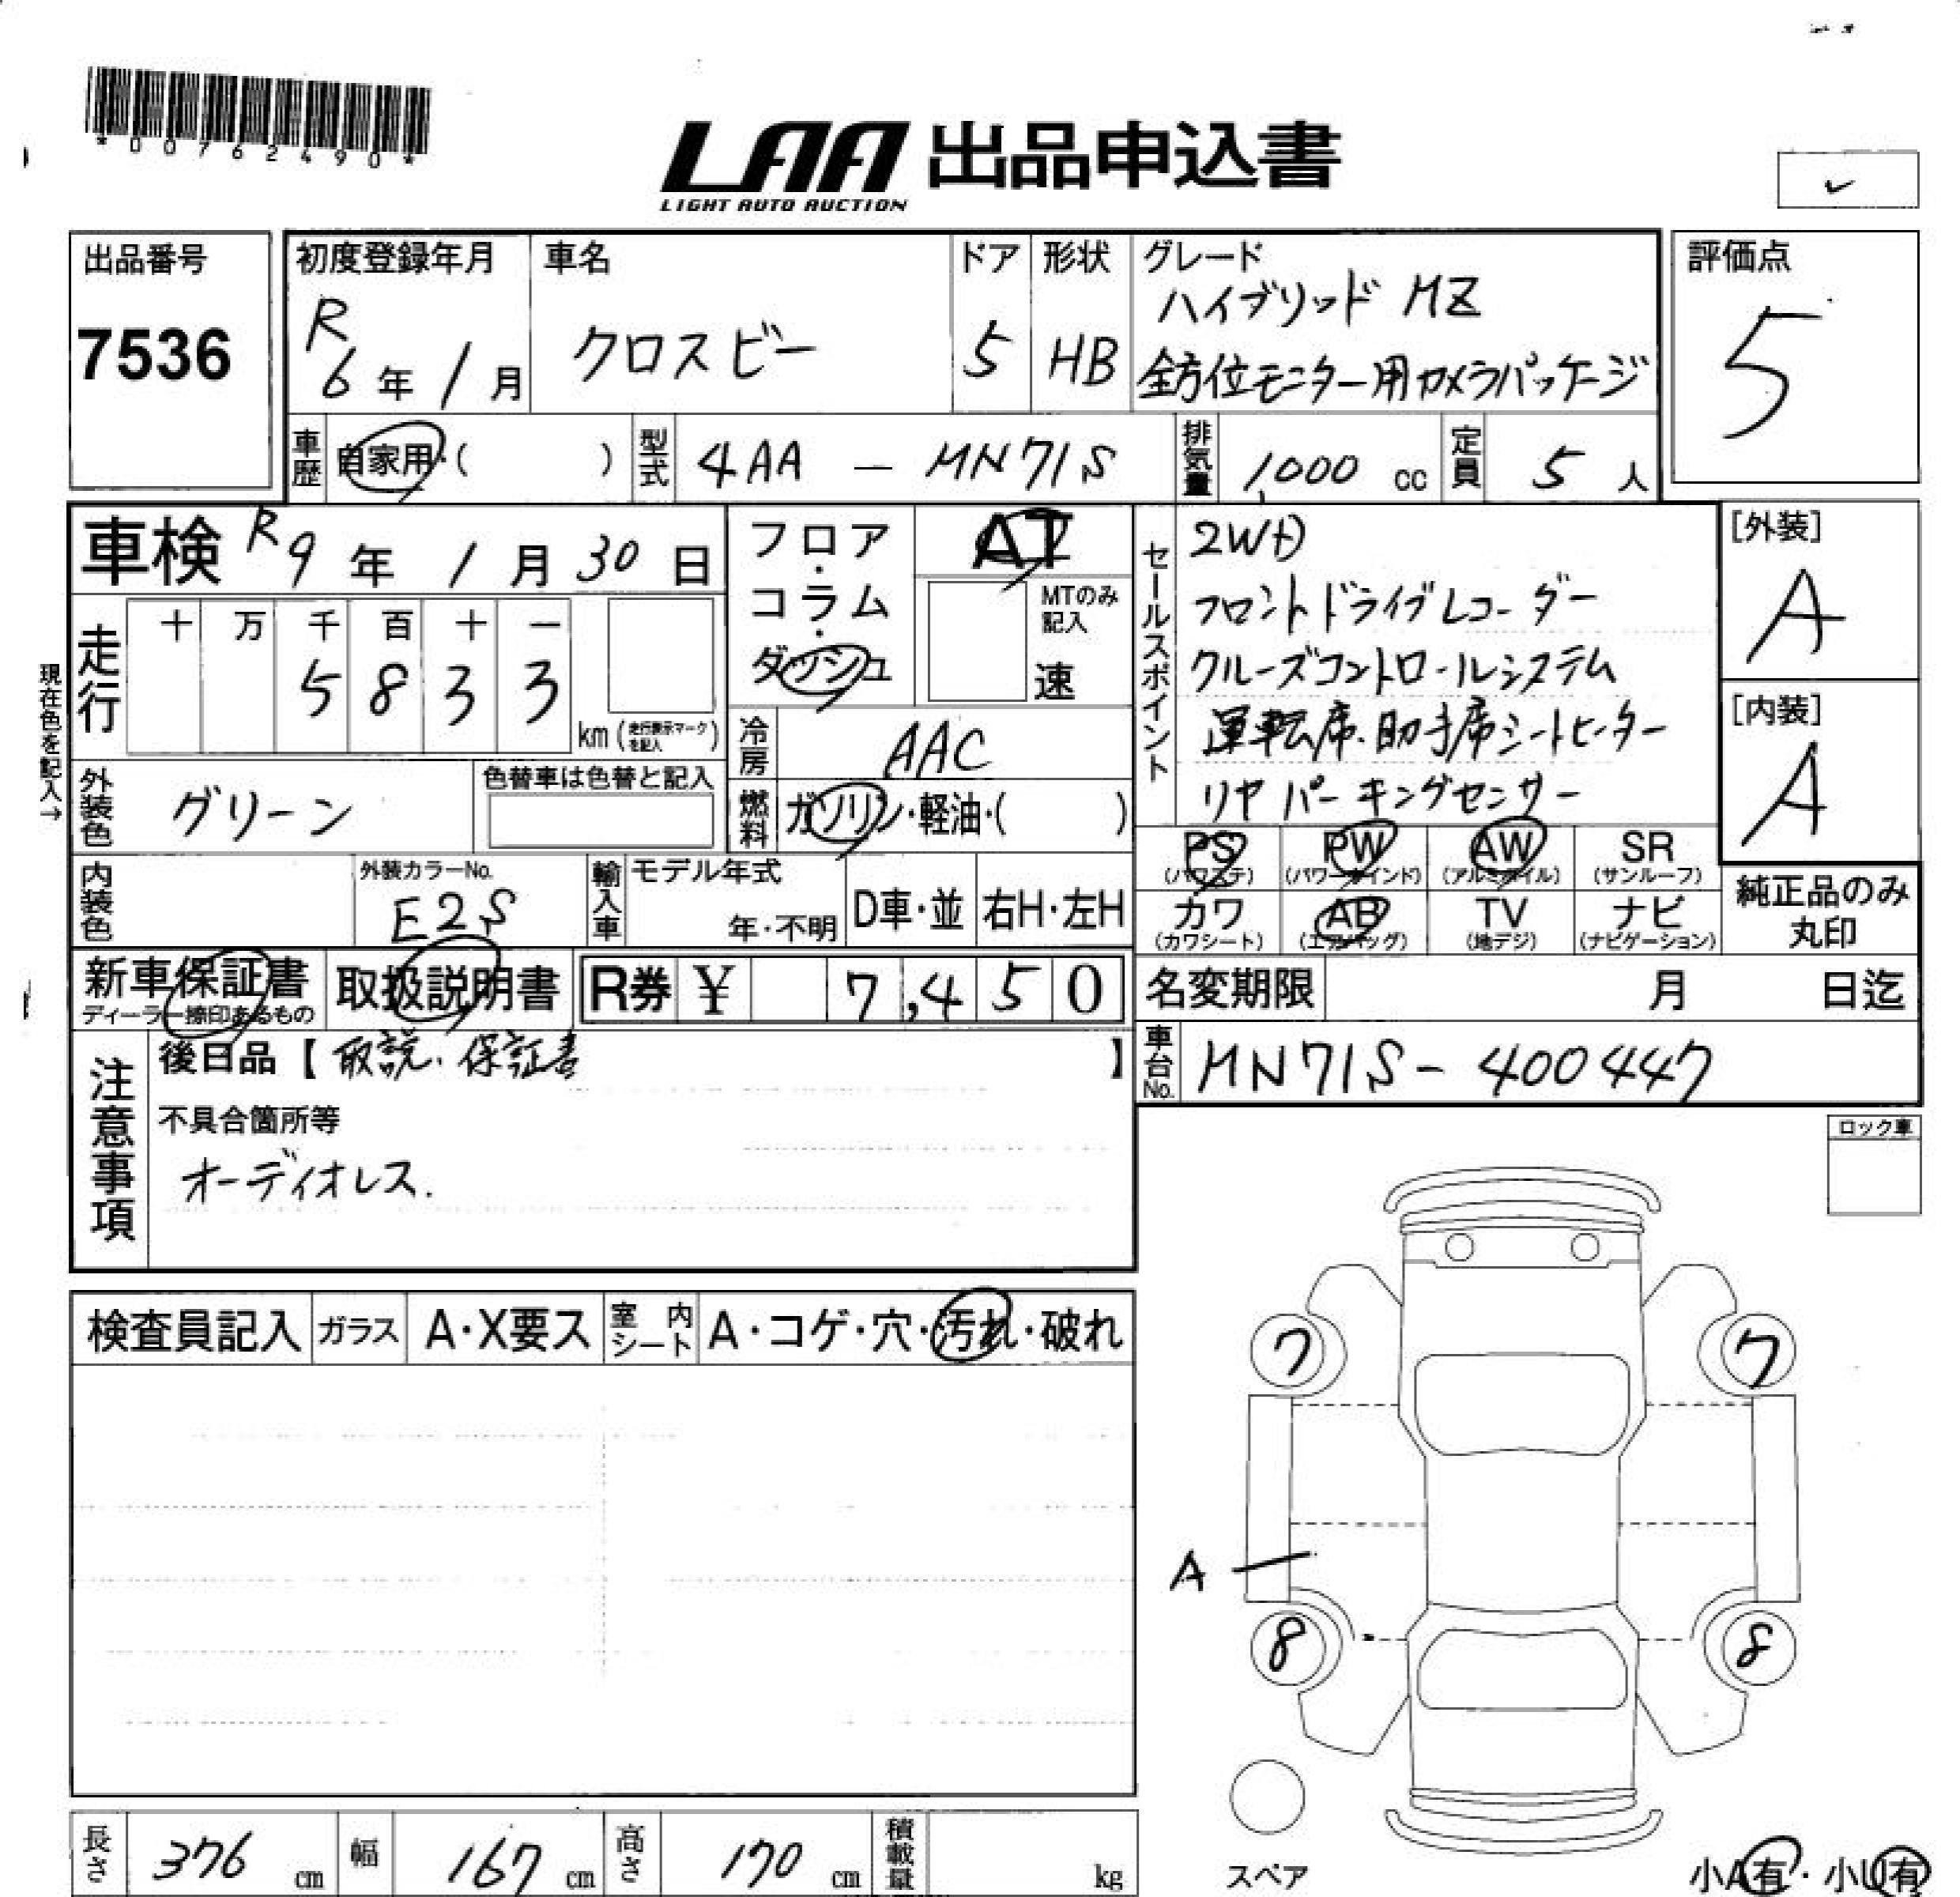 *00762490*
LAA 出品申込書
LIGHT AUTO AUCTION
出品番号
7536
初度登録年月
R6年1月
車名
クロスビー
ドア
5
形状
HB
グレード
ハイブリッド MZ
全方位モニター用カメラパッケージ
評価点
5
車歴 自家用・( )
型式 4AA - MN71S
排気量 1,000 cc
定員 5 人
車検 R9年1月30日
フロア・コラム・ダッシュ
AT
MTのみ記入
速
現在色を記入→
走行
十 万 千 百 十 一
5 8 3 3
km (走行表示マークを記入)
冷房 AAC
燃料 ガソリン・軽油・( )
外装色 グリーン
色替車は色替と記入
内装色
外装カラーNo.
E2S
輸入車
モデル年式
年・不明
D車・並
右H・左H
セールスポイント
2WD
フロントドライブレコーダー
クルーズコントロールシステム
運転席・助手席シートヒーター
リヤパーキングセンサー
[外装]
A
[内装]
A
PS (パワステ)
PW (パワーウインド)
AW (アルミホイル)
SR (サンルーフ)
カワ (カワシート)
AB (エアバッグ)
TV (地デジ)
ナビ (ナビゲーション)
純正品のみ
丸印
新車保証書
ディーラー捺印あるもの
取扱説明書
R券 ¥ 7,450
名変期限 月 日迄
車台No. MN71S-400447
注意事項
後日品【取説・保証書】
不具合箇所等
オーディオレス.
ロック車
検査員記入
ガラス
A・X要ス
室内シート
A・コゲ・穴・汚れ・破れ
7
7
A
8
8
スペア
長さ 376 cm
幅 167 cm
高さ 170 cm
積載量 kg
小A有・小U有